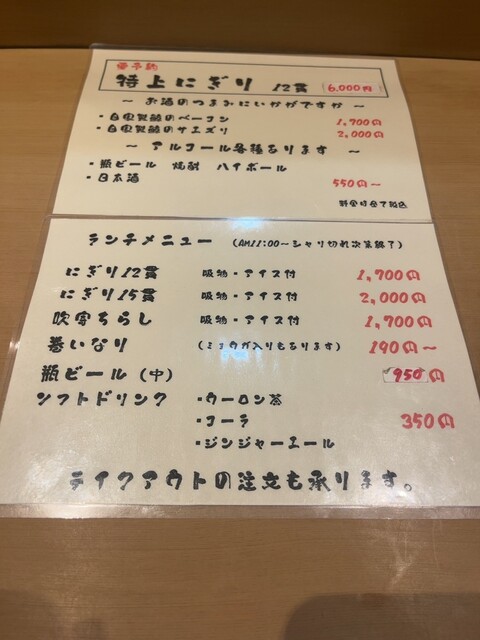 要予約
特上にぎり 12貫 (6,000円)
~ お酒のつまみにいかがですか ~
・自家製鯨のベーコン 1,700円
・自家製鯨のサエズリ 2,000円
~ アルコール各種あります ~
・瓶ビール 焼酎 ハイボール
・日本酒 550円~
料金は全て税込
ランチメニュー (AM11:00~シャリ切れ次第終了)
にぎり12貫 吸物・アイス付 1,700円
にぎり15貫 吸物・アイス付 2,000円
吹寄ちらし 吸物・アイス付 1,700円
巻いなり (ミョウガ入りもあります) 190円~
瓶ビール (中) 950円
ソフトドリンク ・ウーロン茶
・コーラ 350円
・ジンジャーエール
テイクアウトの注文も承ります。